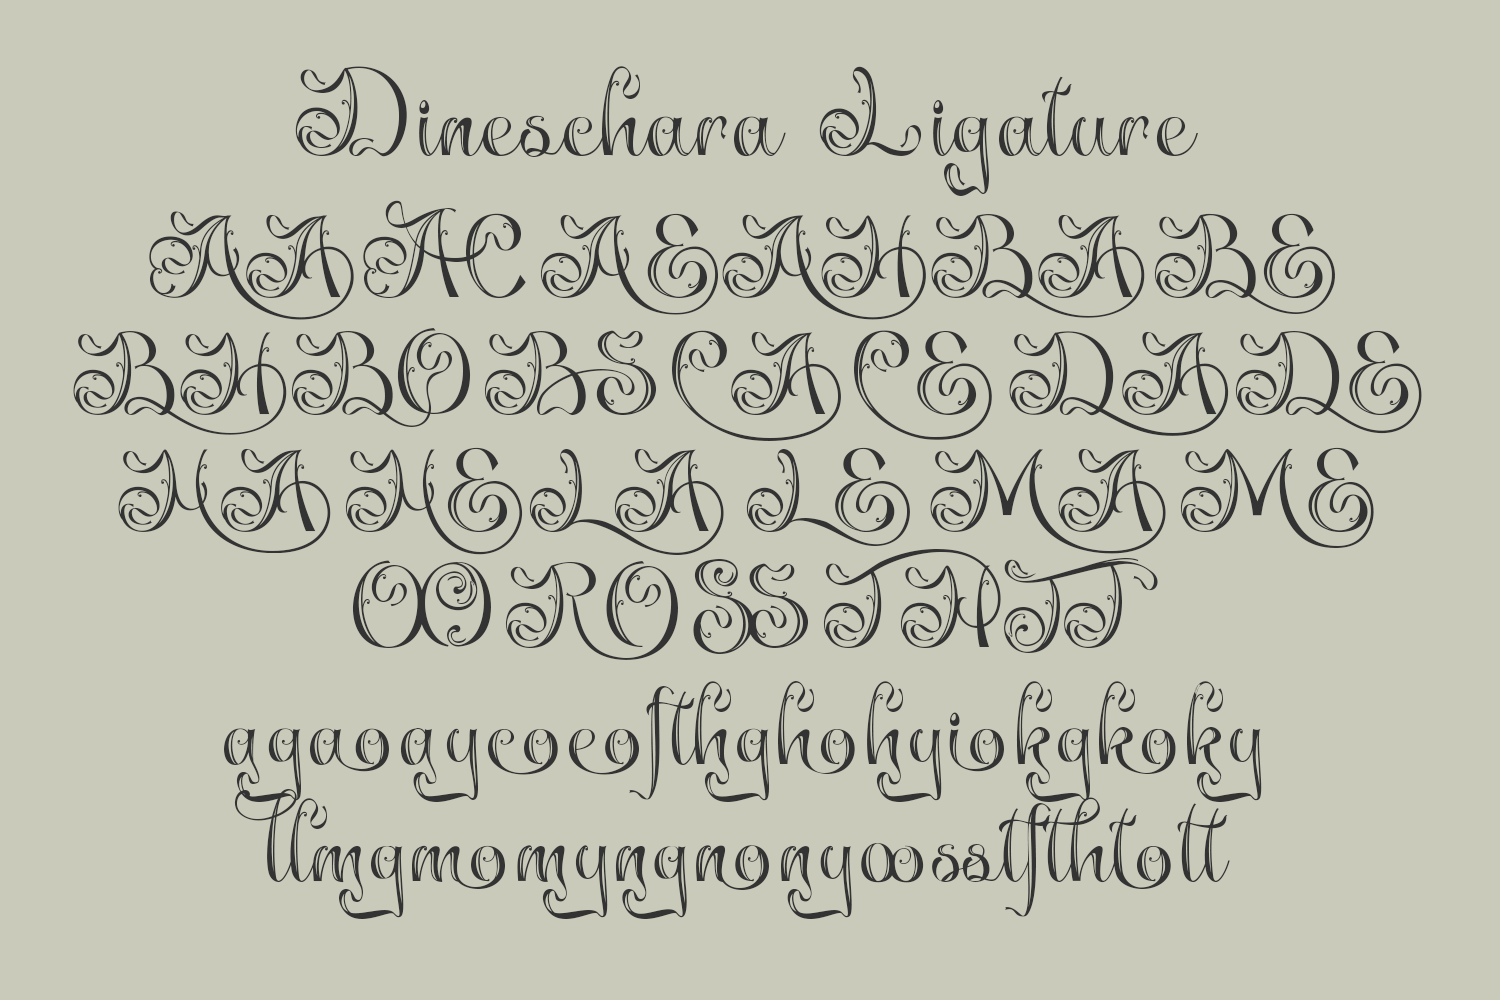 Dineschara Ligature
AA AC AE AH BA BE
BH BO BS CA CE DA DE
HA HE LA LE MA ME
OO RO SS TA TT
agaoaycoeofthghohyiokgkoky
llmgmomyngnonyoosstfthtott